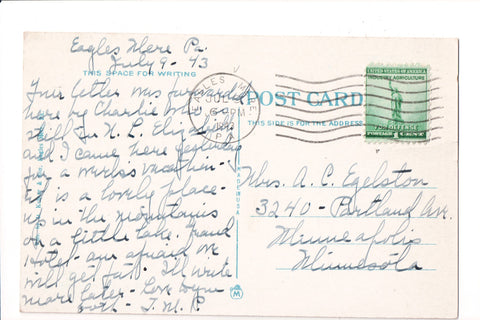 Eagles Mere Pa.
July 9 - 43
THIS SPACE FOR WRITING
Your letter was forwarded
here by Charlie
and I came here yesterday
for a weeks vacation -
it is a lovely place -
up in the mountains
on a little lake. Grand
Hotel - am afraid we
will get fat. I'll write
more later - Love to you
both - J. M. P.
POST CARD
THIS SIDE IS FOR THE ADDRESS
UNITED STATES OF AMERICA
INDUSTRY AGRICULTURE
FOR DEFENSE
POSTAGE 1 CENT
JUL
PM
PA
Mrs. A. C. Egelston
3240 - Portland Ave.
Minneapolis
Minnesota
M